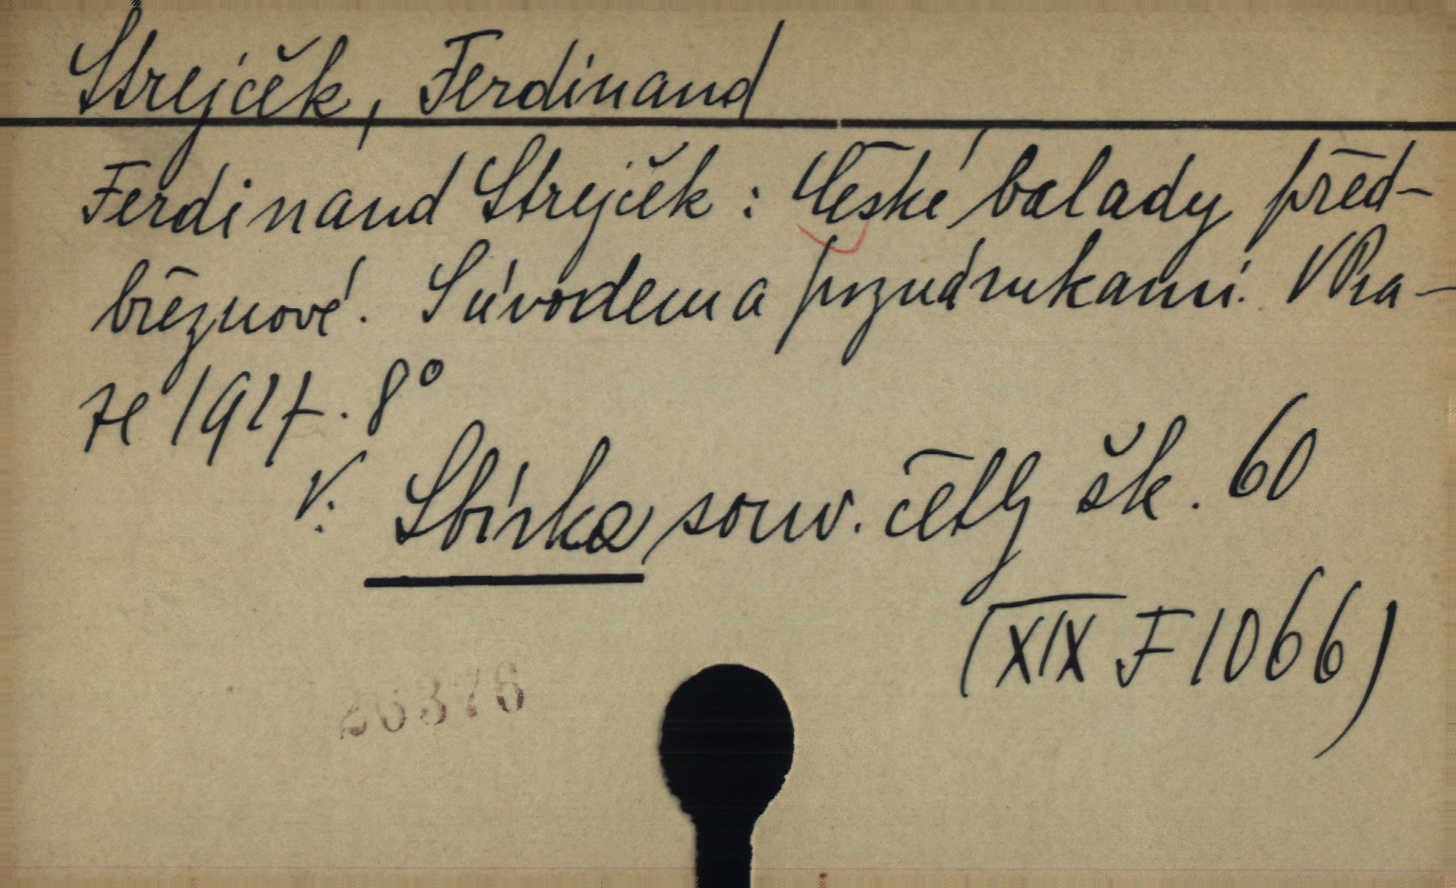 Strejček, Ferdinand
Ferdinand Strejček: České balady před-
březnové. S úvodem a poznámkami. V Pra-
ze 1917. 8°
V: Sbírka souv. četby šk. 60
(XIX F 1066)
26376